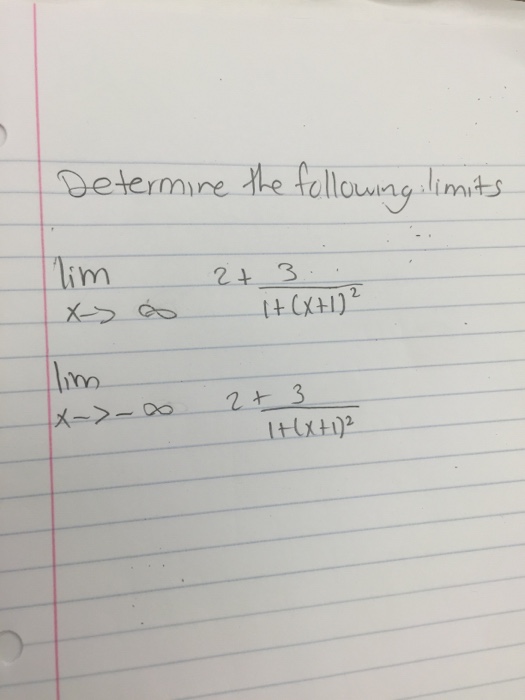 Determine the following limits
lim 2 + 3
x -> ∞ 1+(x+1)²
lim 2 + 3
x -> -∞ 1+(x+1)²